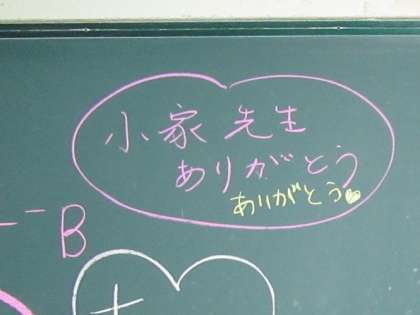 小家 先生
ありがとう
ありがとう
B